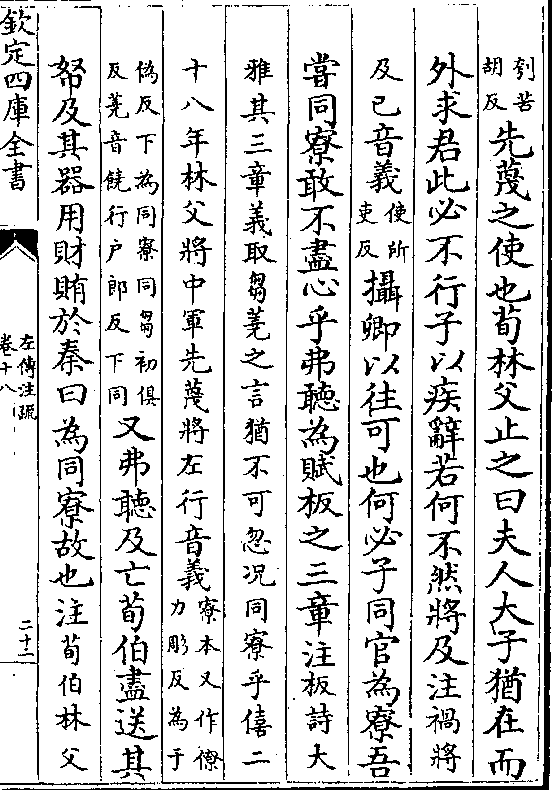 刳苦
胡反
先蔑之使也荀林父止之曰夫人大子猶在而
外求君此必不行子以疾辭若何不然將及注禍將
及已音義
使所
吏反
攝卿以往可也何必子同官為寮吾
嘗同寮敢不盡心乎弗聽為賦板之三章注板詩大
雅其三章義取芻蕘之言猶不可忽况同寮乎僖二
十八年林父將中軍先蔑將左行音義
寮本又作僚
力彫反為于
偽反下為同寮同芻初俱
反蕘音饒行户郎反下同
又弗聽及亡荀伯盡送其
帑及其器用財賄於秦曰為同寮故也注荀伯林父
欽定四庫全書
左傳注疏
卷十八
二十二